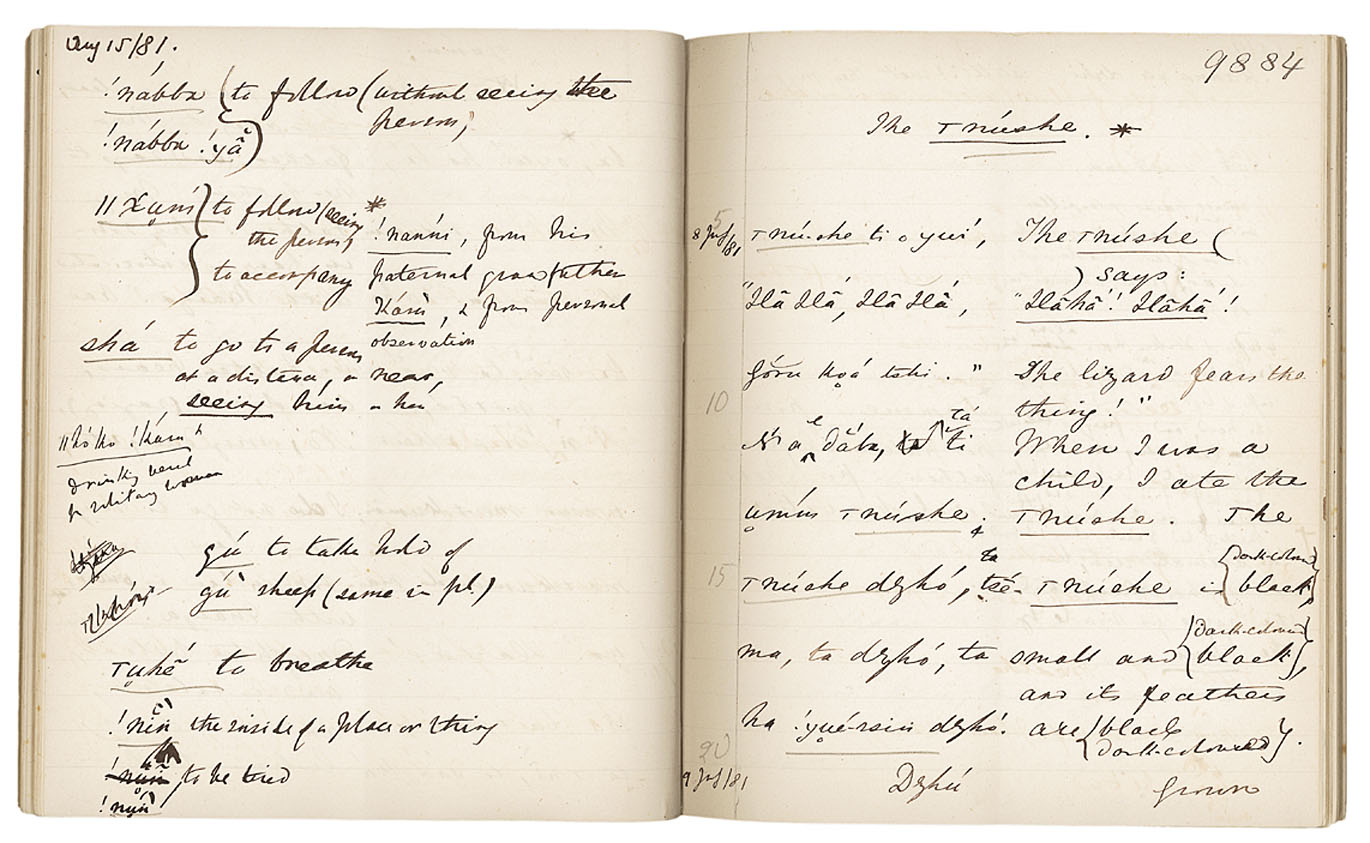 Aug 15/81.
!nábba { to follow (without seeing the
person)
!nábba !yã
||Xaṃí to follow (seeing
the person)
to accompany
* !nanni, from his
paternal grandfather
Karu, & from personal
observation
shá to go to a person
at a distance, or near,
seeing him or her
drinking vessel
for solitary woman
gú to take hold of
gú sheep (same in pl.)
to breathe
!nin the inside of a place or thing
to be tired
!nun
9884
The Tnúshe. *
5
8 July/81
Tnúshe ti o yuí, The Tnúshe (
) says:
"Ilā Ilā, Ilā Ilā, "Ilāhā! Ilāhā!
Góru koá tshi." The lizard fears the
10
thing!"
N a dába, ti When I was a
child, I ate the
Tnúshe. Tnúshe. The
15
Tnúshe dzhó, Tnúshe is {dark-coloured
black},
ma, ta dzhó, ta small and {dark-coloured
black},
and its feathers
ha !yué-sin dzhó. are {black
dark-coloured}.
20
9 July/81
Dzhú Grown